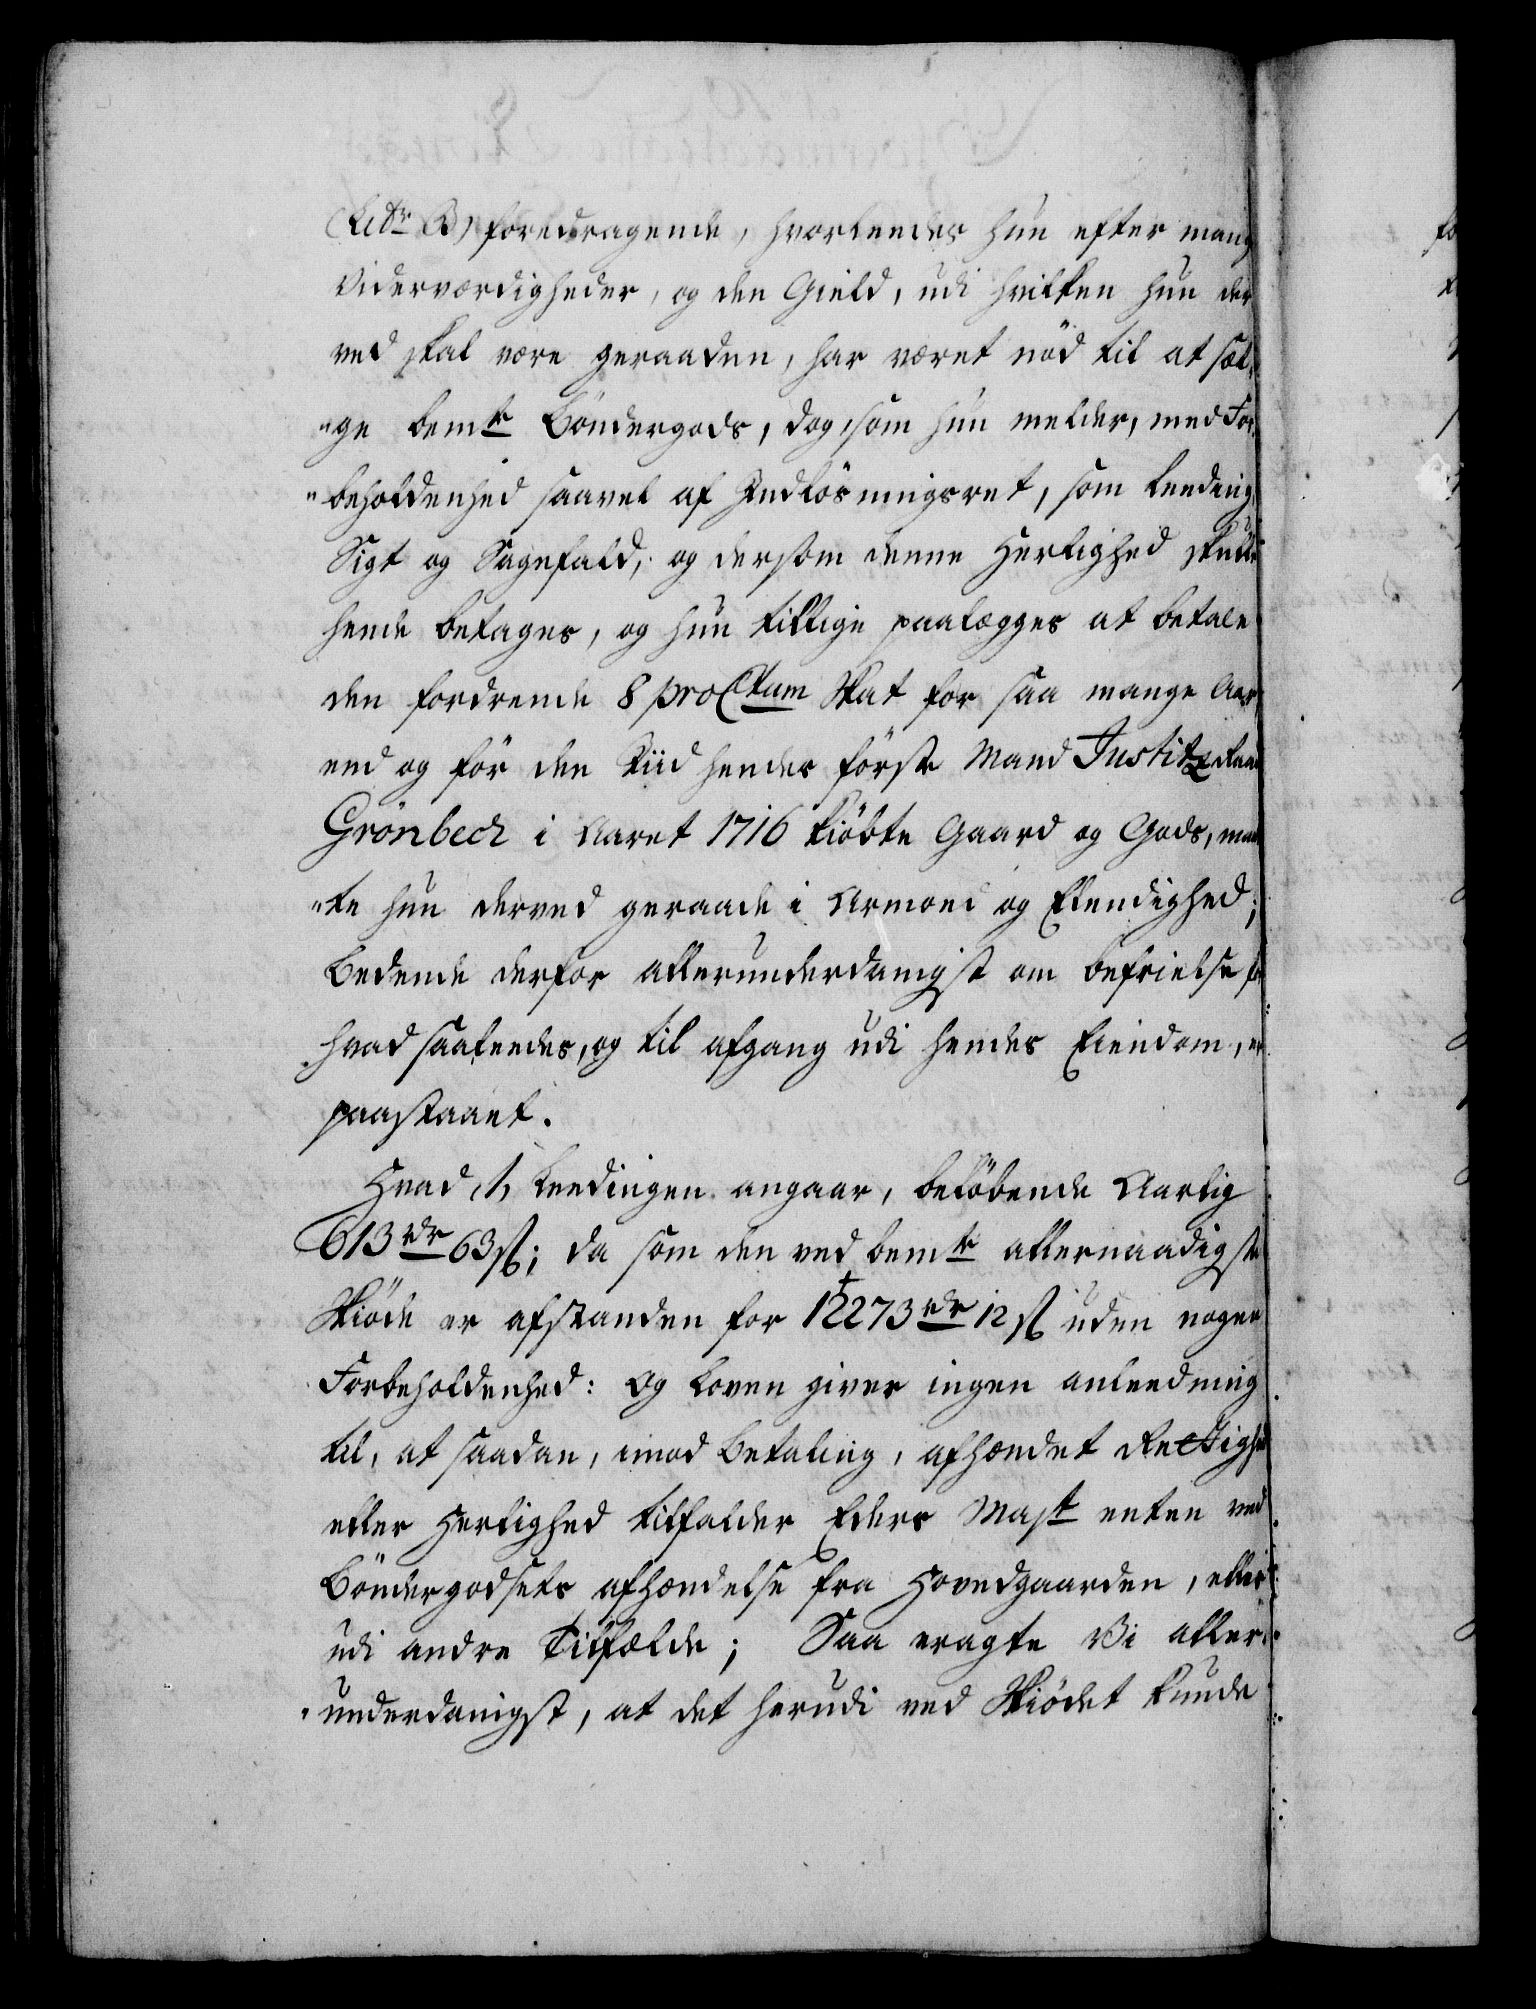 (Litr B) foredragende, hvorleedes hun efter mang
Viderværdigheder, og den Gield, udi hvilken hun der
ved skal være geraaden, har været nöd til at sæl,,
,,ge bemte Böndergods, dog, som hun melder, med For,,
,,beholdenhed saavel af Indlösningsret, som Leeding,
Sigt og Sagefald, og dersom denne Herlighed skulle
hende betages, og hun tillige paalægges at betale
den fordrende 8 proCtum Skat for saa mange Aar
end og för den Tiid hendes förste Mand Justitz Raad
Grönbech i Aaret 1716 kiöbte Gaard og Gods, maat
,,te hun derved geraade i Armoed og Elendighed;
Bedende derfor allerunderdanigst om befrielse for
hvad saaleedes, og til afgang udi hendes Eiendom, er
paastaaet.
Hvad 1, Leedingen angaar, belöbende Aarlig
613 rdr 63 ß; da som den ved bemte allernaadigste
Skiöde er afstanden for 12273 rdr 12 ß uden nogen
Forbeholdenhed: Og Loven giver ingen anleedning
til, at saadan, imod Betaling, afhændet Rettighed
eller Herlighed tilfalder Eders Mayt enten ved
Böndergodsets afhændelse fra Hovedgaarden, eller
udi andre Tilfælde; Saa eragte Vi aller,,
,,underdanigst, at det herudi ved Skiödet kunde